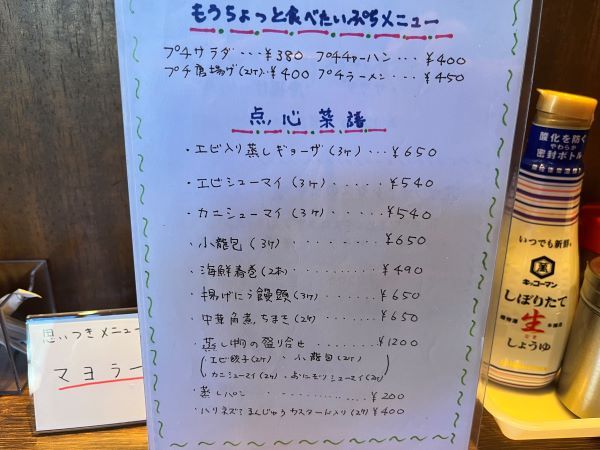 もうちょっと食べたいぷちメニュー
プチサラダ・・・¥380 プチチャーハン・・・¥400
プチ唐揚げ(2ケ)・¥400 プチラーメン・・・¥450
点心菜譜
・エビ入り蒸しギョーザ(3ケ)・・・¥650
・エビシューマイ(3ケ)・・・・・¥540
・カニシューマイ(3ケ)・・・・¥540
・小籠包(3ケ)・・・・・・・・¥650
・海鮮春巻(2本)・・・・・・・¥490
・揚げにら饅頭(3ケ)・・・・・¥650
・中華角煮ちまき(2ケ)・・・・¥650
・蒸し物の盛り合せ・・・・・¥1200
(エビ餃子(2ケ)・小籠包(2ケ)
カニシューマイ(2ケ)・おにもりシューマイ(2ケ))
・蒸しパン・・・・・・・・¥200
・ハリネズミまんじゅうカスタード入り(2ケ)¥400
思いつきメニュー
マヨラー
酸化を防ぐ
やわらか
密封ボトル
いつでも新鮮
萬
キッコーマン
しぼりたて
生
しょうゆ